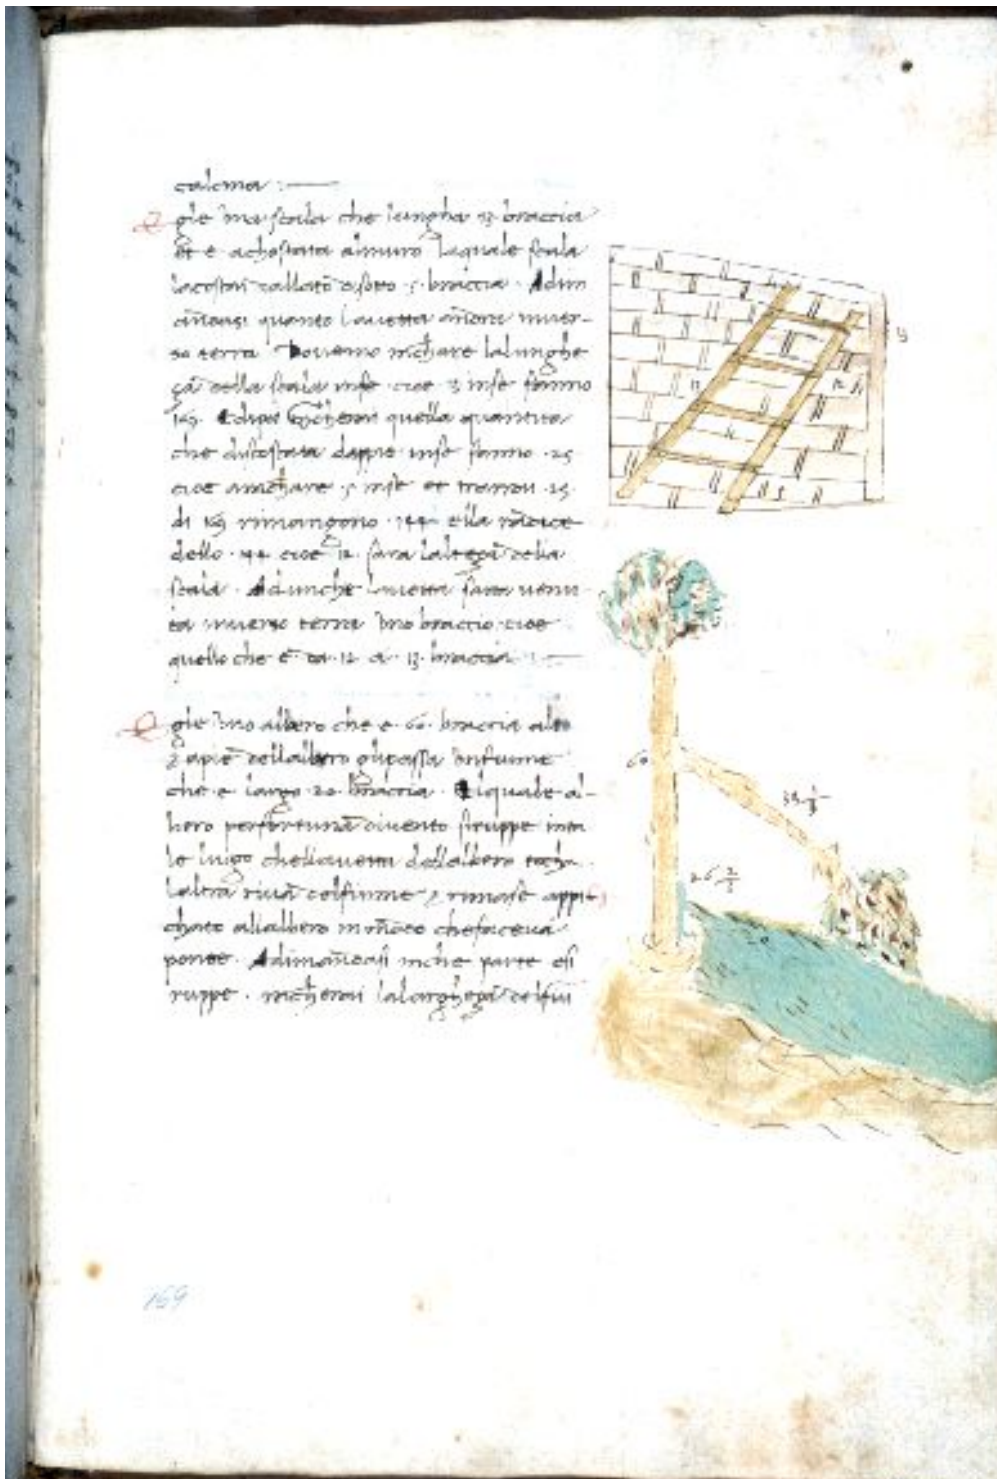 calcina :—
Egle una scala che lungha 13 braccia
et e achostata almuro laquale scala
braccia · Adim
quanto lauetta inuer-
so terra Douemo lalunghe
ça della scala inse · cioe 13 inse fanno
169 · quella quantita
che discostata dappie inse fanno · 25
cioe · 5 inse et trarrai · 25 ·
di 169 rimangono · 144 · ella radice
dello · 144 cioe 12 · sara lalteça della
scala · Adunche lauetta sara uenu
ta inuerso terra uno braccio cioe
quello che e da · 12 · a · 13 · braccia :—
Egle uno albero che e · 60 · braccia alto
z apie dellalbero glipassa unfiume
che e largo · 20 braccia · Elquale al-
bero perfortuna diuento siruppe inta
le luogo chellauetta dellalbero tocha
laltra riua delfiume z rimase appic
chato allalbero in modo chefaceua
ponte · Adimandasi inche parte esi
ruppe · lalargheça delfiu
13
12
12
5
60
33 1/3
26 2/3
20
169